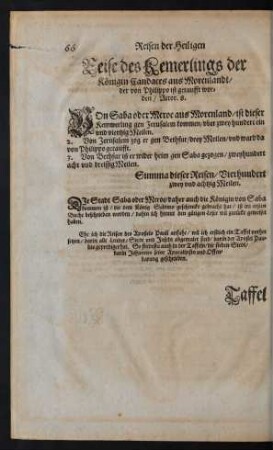 66 Reisen der Heiligen
Reise des Kemerlings der
Königin Candaces aus Morenlandt/
der von Philippo ist getaufft wor-
den/ Actor. 8.
VOn Saba oder Meroe aus Morenland/ ist dieser
Kemmerling gen Jerusalem kommen/ vier
und viertzig Meilen.
2. Von Jerusalem zog er gen Bethzur/ Meilen/ und ward da
von Philippo getaufft.
3. Von Bethzur ist er wider heim gen Saba gezogen/ zweyhundert
acht und dreissig Meilen.
Summa dieser Reisen/ Vierhundert
zwey und achtzig Meilen.
DIe Stadt Saba oder Meroe daher auch die Königin von Saba
kommen ist/ die dem König Salomo geschencke gebracht hat/ ist im ersten
Buche beschrieben worden/
haben.
Ehe ich die Reisen des Apostels Pauli anfahe/ wil ich erstlich ein Taffel vorher
setzen/ darin alle Lender/ Stete und Inseln abgemalet sind/ darin der Apostel Pau-
lus geprediget hat. So
darin Johannes seine Apocalypsin und Offen-
barung geschrieben.
Taffel